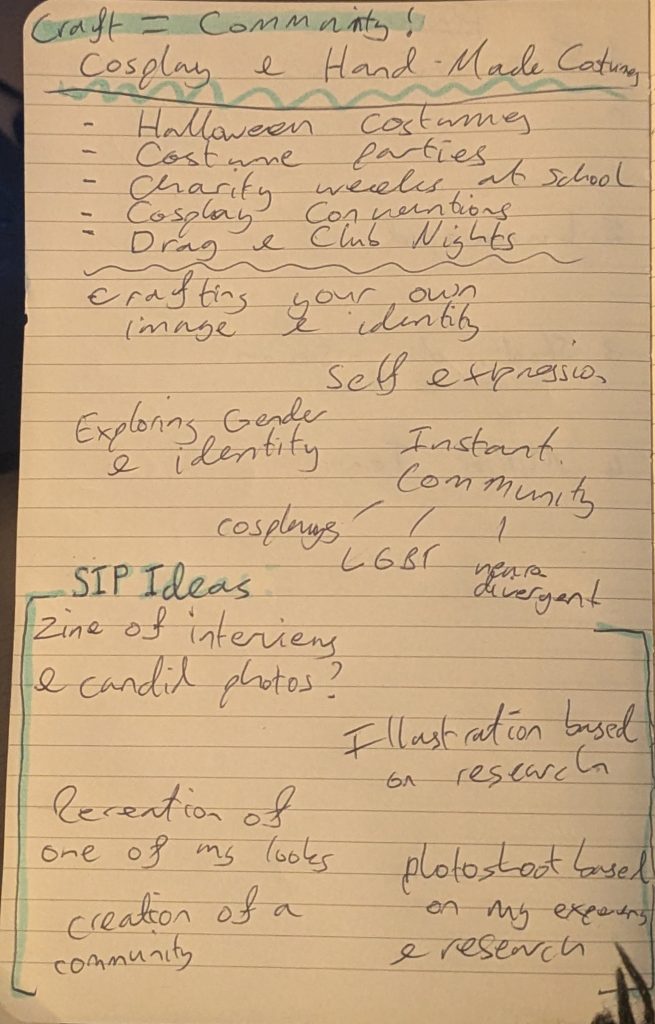 Craft = Community!
Cosplay & Hand-Made Costumes
- Halloween costumes
- Costume parties
- Charity weeks at school
- Cosplay Conventions
- Drag & Club Nights
Crafting your own
image & identity
Self expression
Exploring Gender
& identity
Instant
Community
cosplayers
LGBT
neuro
divergent
SIP Ideas
Zine of interviews
& candid photos?
Illustration based
on research
Recreation of
one of my looks
photoshoot based
on my experiences
& research
creation of a
community